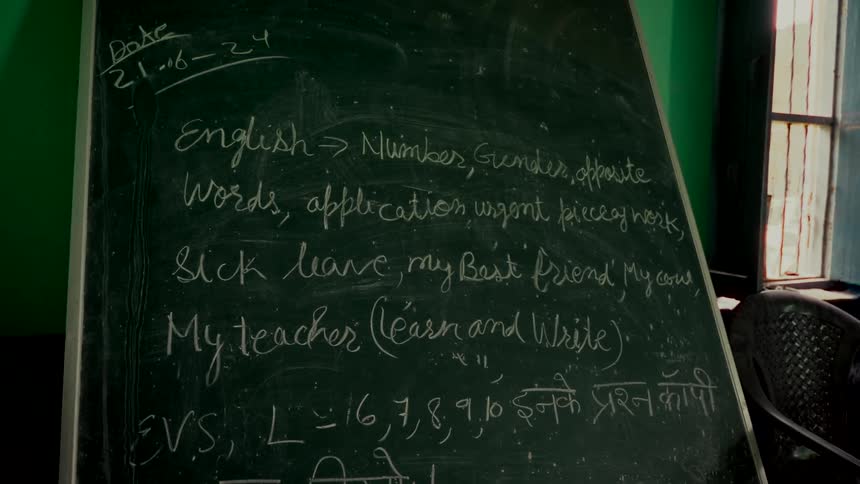 Date
21-16-24
English → Number, Gunder, opposite
Words, application urgent piece of work,
Sick leave, my Best friend, My cow,
My teacher (learn and Write)
EVS, L = 16,7,8,9,10 इनके प्रश्न कॉपी